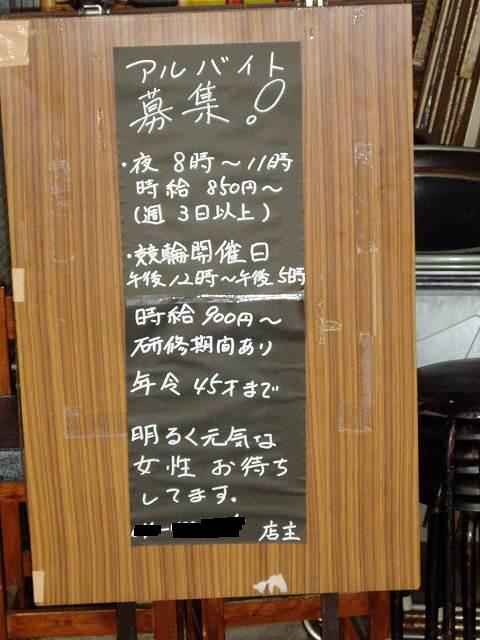 アルバイト
募集!
・夜 8時〜11時
時給 850円〜
(週 3日以上)
・競輪開催日
午後12時〜午後5時
時給 900円〜
研修期間あり
年令 45才まで
明るく元気な
女性 お待ち
してます。
店主